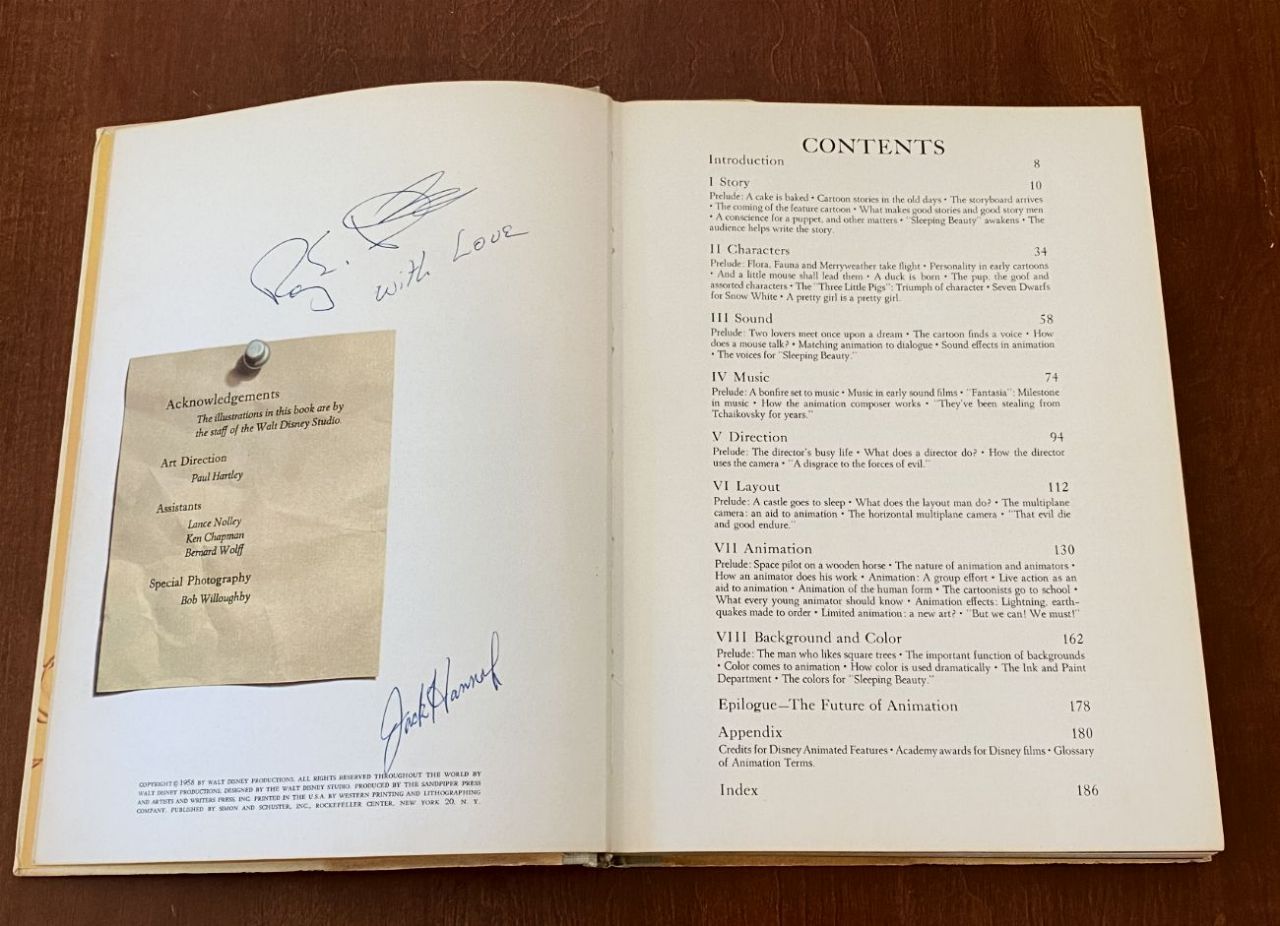 with Love
Acknowledgements
The illustrations in this book are by
the staff of the Walt Disney Studio.
Art Direction
Paul Hartley
Assistants
Lance Nolley
Ken Chapman
Bernard Wolff
Special Photography
Bob Willoughby
Jack Hannah
COPYRIGHT © 1958 BY WALT DISNEY PRODUCTIONS. ALL RIGHTS RESERVED THROUGHOUT THE WORLD BY
WALT DISNEY PRODUCTIONS. DESIGNED BY THE WALT DISNEY STUDIO. PRODUCED BY THE SANDPIPER PRESS
AND ARTISTS AND WRITERS PRESS, INC. PRINTED IN THE U.S.A. BY WESTERN PRINTING AND LITHOGRAPHING
COMPANY. PUBLISHED BY SIMON AND SCHUSTER, INC., ROCKEFELLER CENTER, NEW YORK 20, N. Y.
CONTENTS
Introduction 8
I Story 10
Prelude: A cake is baked • Cartoon stories in the old days • The storyboard arrives
• The coming of the feature cartoon • What makes good stories and good story men
• A conscience for a puppet, and other matters • "Sleeping Beauty" awakens • The
audience helps write the story.
II Characters 34
Prelude: Flora, Fauna and Merryweather take flight • Personality in early cartoons
• And a little mouse shall lead them • A duck is born • The pup, the goof and
assorted characters • The "Three Little Pigs": Triumph of character • Seven Dwarfs
for Snow White • A pretty girl is a pretty girl.
III Sound 58
Prelude: Two lovers meet once upon a dream • The cartoon finds a voice • How
does a mouse talk? • Matching animation to dialogue • Sound effects in animation
• The voices for "Sleeping Beauty."
IV Music 74
Prelude: A bonfire set to music • Music in early sound films • "Fantasia": Milestone
in music • How the animation composer works • "They've been stealing from
Tchaikovsky for years."
V Direction 94
Prelude: The director's busy life • What does a director do? • How the director
uses the camera • "A disgrace to the forces of evil."
VI Layout 112
Prelude: A castle goes to sleep • What does the layout man do? • The multiplane
camera: an aid to animation • The horizontal multiplane camera • "That evil die
and good endure."
VII Animation 130
Prelude: Space pilot on a wooden horse • The nature of animation and animators •
How an animator does his work • Animation: A group effort • Live action as an
aid to animation • Animation of the human form • The cartoonists go to school •
What every young animator should know • Animation effects: Lightning, earth-
quakes made to order • Limited animation: a new art? • "But we can! We must!"
VIII Background and Color 162
Prelude: The man who likes square trees • The important function of backgrounds
• Color comes to animation • How color is used dramatically • The Ink and Paint
Department • The colors for "Sleeping Beauty."
Epilogue—The Future of Animation 178
Appendix 180
Credits for Disney Animated Features • Academy awards for Disney films • Glossary
of Animation Terms.
Index 186